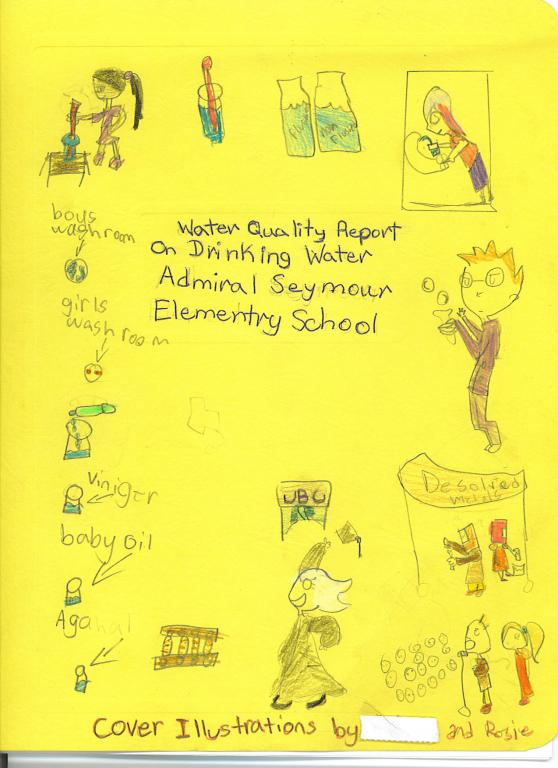 Water Quality Report
On Drinking Water
Admiral Seymour
Elementry School
boys
washroom
girls
washroom
Viniger
baby oil
UBC
Desolved
Metals
Cover Illustrations by
and Rosie